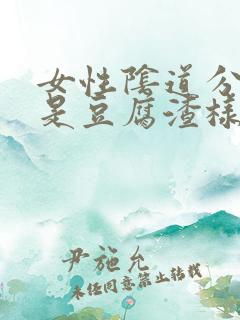 女性陰道分
是豆腐渣樣
尹施允
未经同意禁止转载